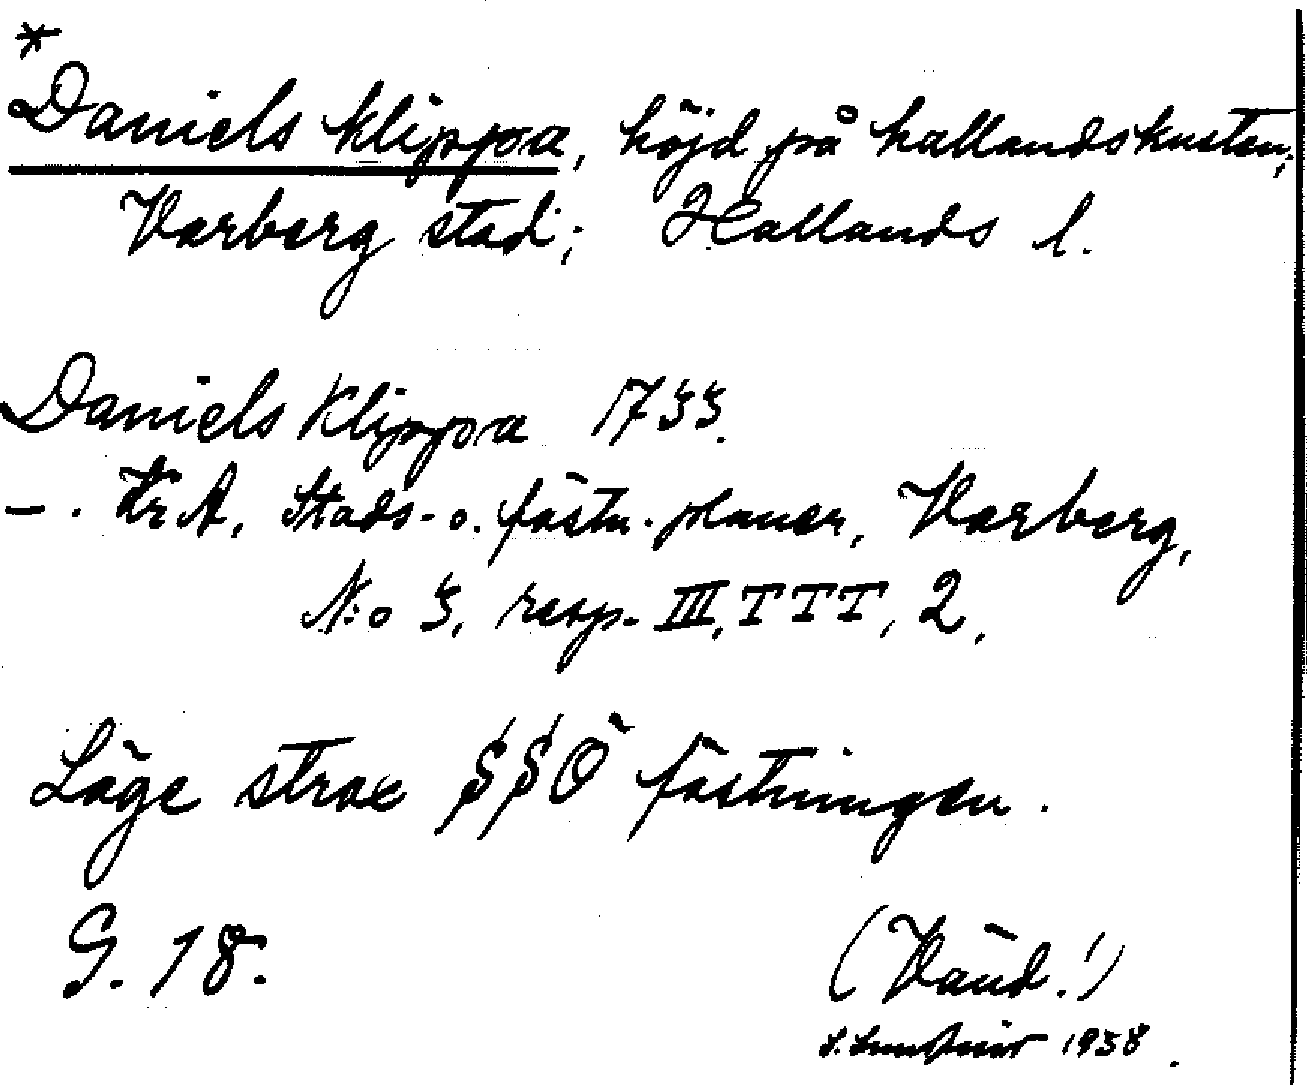 *
Daniels klippa, höjd på hallandskusten,
Varberg stad; Hallands l.
Daniels Klippa 1733.
—. KrA, Stads- o. fästn. planer, Varberg,
N:o 3, resp. III, TTT, 2.
Läge strax SSÖ fästningen.
G. 18.
(Vänd!)
1938.